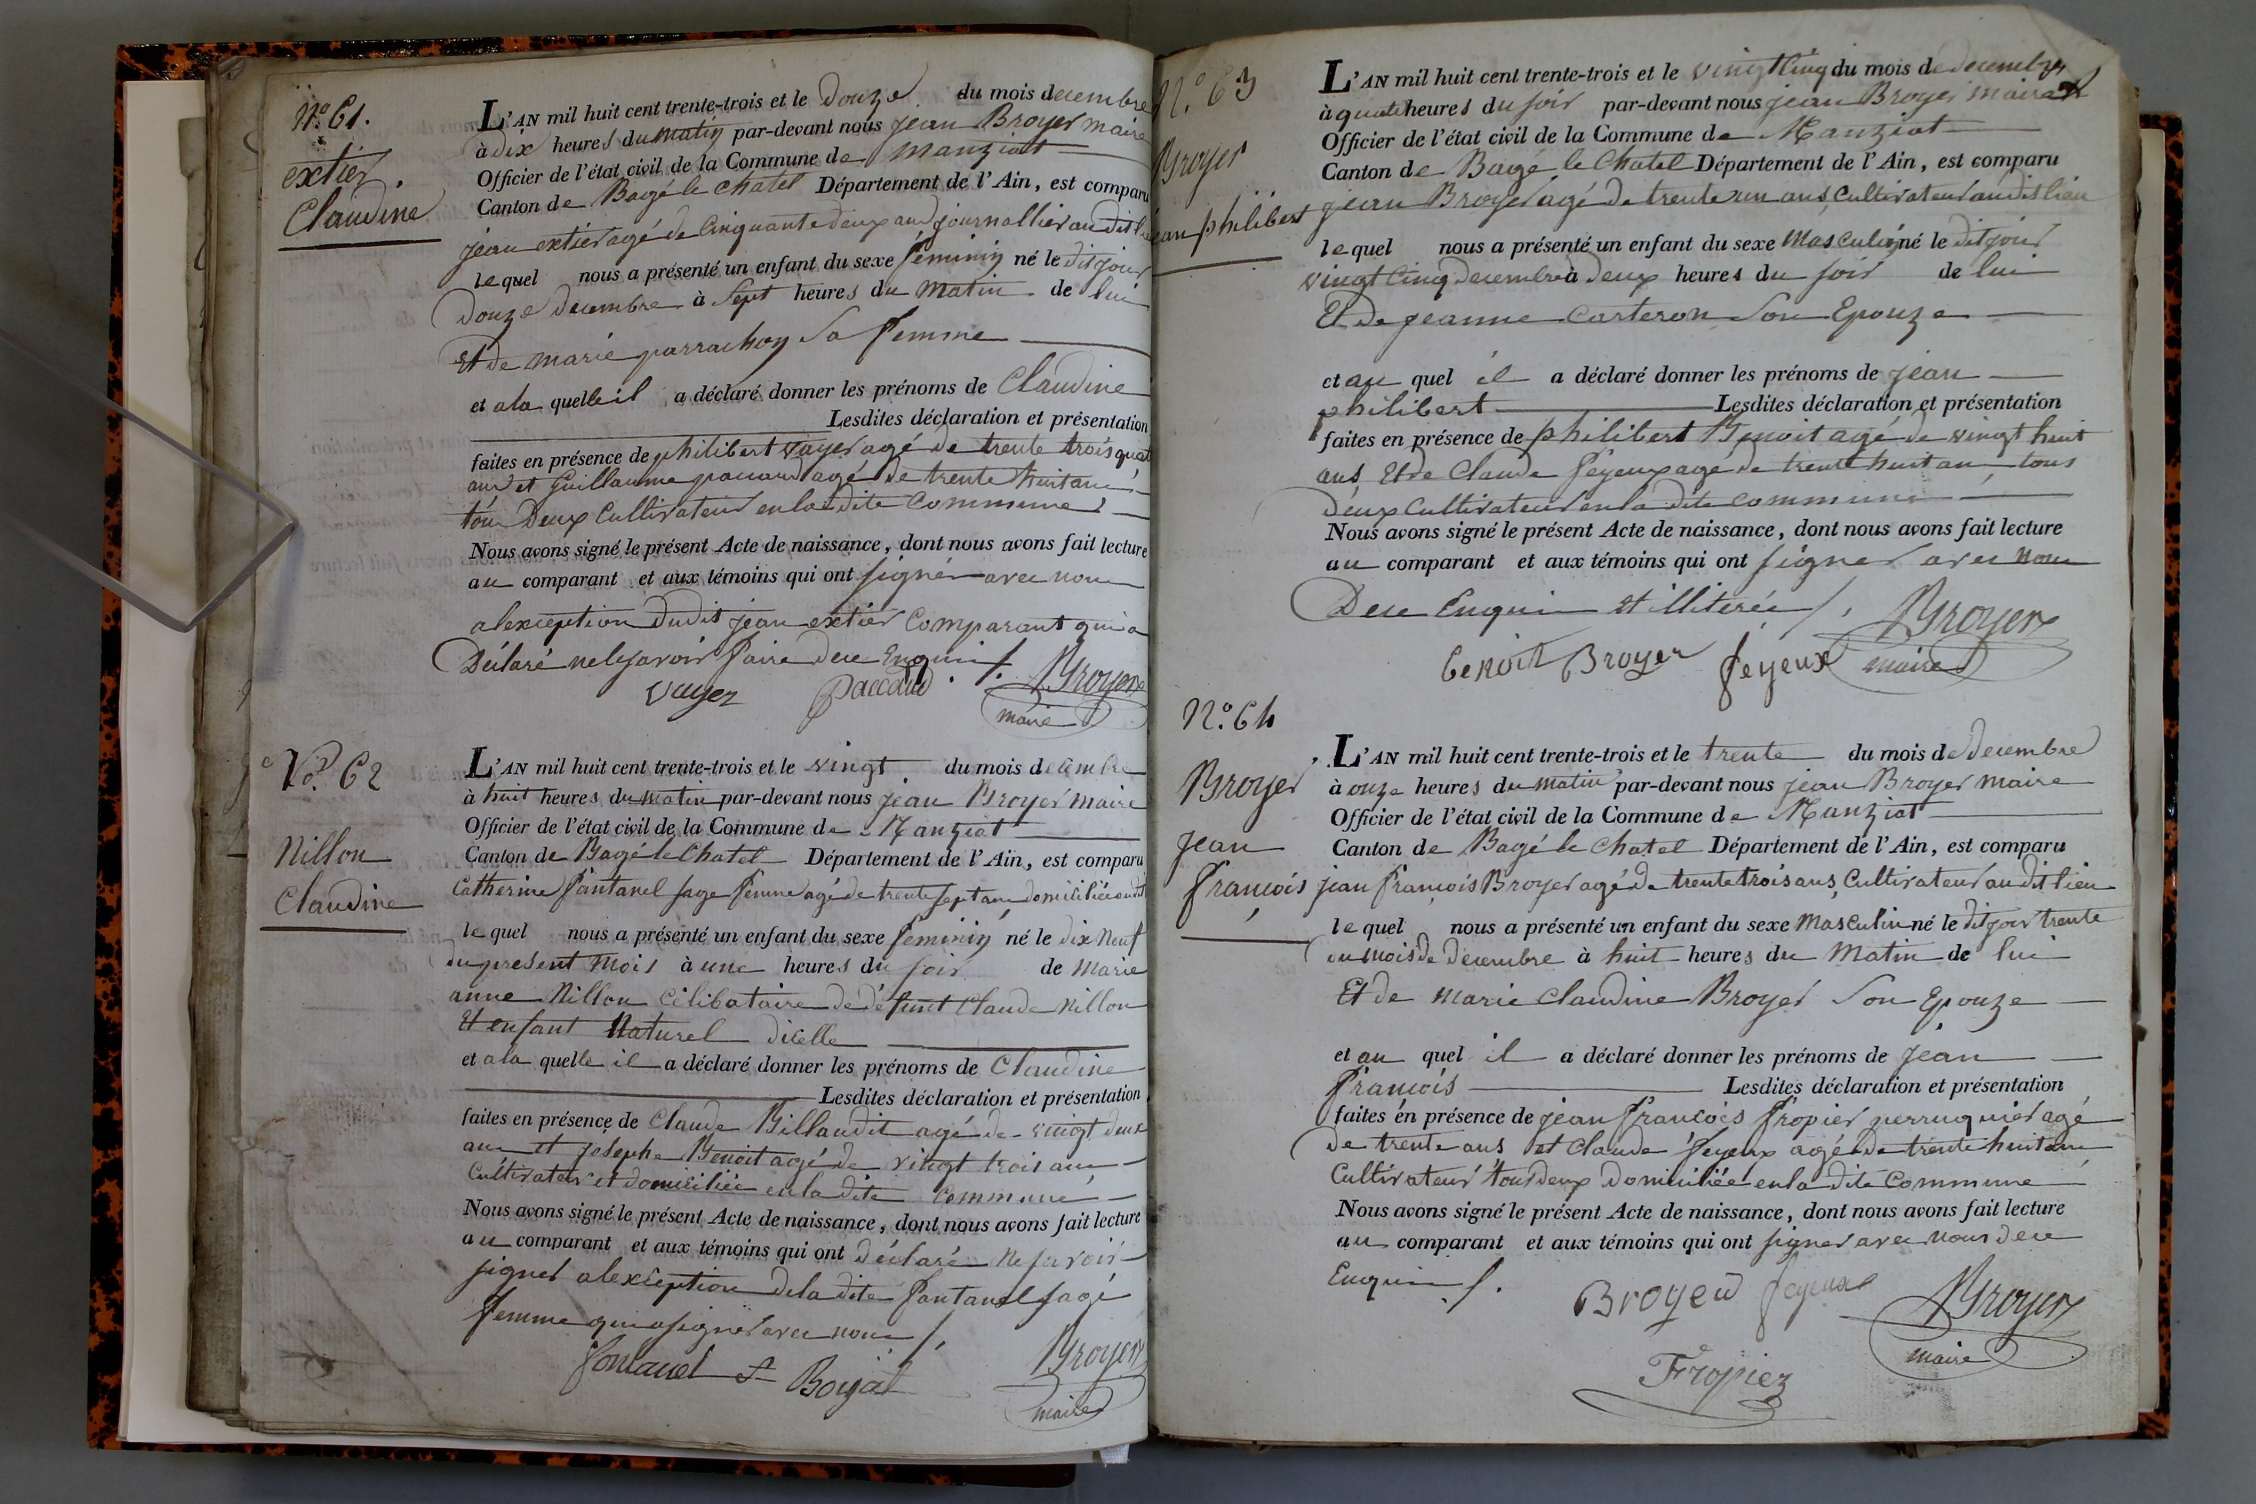 N.° 61.
extier.
Claudine
L'AN mil huit cent trente-trois et le Douze du mois decembre
à dix heures du matin par-devant nous jean Broyer maire
Officier de l'état civil de la Commune de manziat
Canton de Bagé le chatel Département de l'Ain, est comparu
jean extier agé de Cinquante deux ans journallier au dit lieu
lequel nous a présenté un enfant du sexe féminin né le dit jour
Douze decembre à sept heures du matin de lui
Et de marie parrachon sa femme
et a la quelle il a déclaré donner les prénoms de Claudine
Lesdites déclaration et présentation
faites en présence de philibert vayer agé de trente trois
ans et Guillaume paccaud agé de trente huit ans
tous Deux Cultivateur en la dite Commune
Nous avons signé le présent Acte de naissance, dont nous avons fait lecture
au comparant et aux témoins qui ont signer avec nous
alexception Dudit jean extier Comparant qui a
Déclaré ne le savoir faire Dece Enquis ./.
vayer paccaud Broyer
maire
N.° 62
Nillon
Claudine
L'AN mil huit cent trente-trois et le vingt du mois decembre
à huit heures du matin par-devant nous jean Broyer maire
Officier de l'état civil de la Commune de Manziat
Canton de Bagé le Chatel Département de l'Ain, est comparu
Catherine fantanel sage femme agé de trente sept ans domiciliée audit
lequel nous a présenté un enfant du sexe feminin né le dix Neuf
du present mois à une heures du soir de Marie
anne Nillon Célibataire de défunt Claude Nillon
Et enfant Naturel dicelle
et a la quelle il a déclaré donner les prénoms de Claudine
Lesdites déclaration et présentation
faites en présence de Claude Billaudit agé de vingt deux
ans et joseph Benoit agé de vingt trois ans
Cultivateur et domiciliée en la dite commune
Nous avons signé le présent Acte de naissance, dont nous avons fait lecture
au comparant et aux témoins qui ont déclaré ne savoir
signer alexception dela dite fantanel sage
femme qui a signer avec nous ./.
fontanel Broyer
maire
N.° 63
Broyer
jean philibert
L'AN mil huit cent trente-trois et le vingt Cinq du mois de decembre
à quatre heures du soir par-devant nous jean Broyer maire
Officier de l'état civil de la Commune de Manziat
Canton de Bagé le Chatel Département de l'Ain, est comparu
jean Broyer agé de trente un ans, Cultivateur au dit lieu
lequel nous a présenté un enfant du sexe Masculin né le dit jour
vingt Cinq Decembre à Deux heures du soir de lui
Et De jeanne Carteron Son Epouze
et au quel il a déclaré donner les prénoms de jean
philibert Lesdites déclaration et présentation
faites en présence de philibert Benoit agé de vingt huit
ans, Et de Claude feyeux age de trente huit ans tous
Deux Cultivateur en la dite commune
Nous avons signé le présent Acte de naissance, dont nous avons fait lecture
au comparant et aux témoins qui ont signer avec nous
Dece Enquis et illiterée ./. Broyer
benoit Broyer feyeux maire
N.° 64
Broyer
jean
françois
L'AN mil huit cent trente-trois et le trente du mois de decembre
à onze heures du matin par-devant nous jean Broyer maire
Officier de l'état civil de la Commune de Manziat
Canton de Bagé le Chatel Département de l'Ain, est comparu
jean françois Broyer agé de trente trois ans, Cultivateur au dit lieu
lequel nous a présenté un enfant du sexe Masculin né le dit jour trente
du mois de decembre à huit heures du Matin de lui
Et de marie claudine Broyer Son Epouze
et au quel il a déclaré donner les prénoms de jean
françois Lesdites déclaration et présentation
faites en présence de jean françois fropier perruquier agé
de trente ans et claude feyeux agé de trente huit ans
Cultivateur tous deux Domiciliée en la dite Commune
Nous avons signé le présent Acte de naissance, dont nous avons fait lecture
au comparant et aux témoins qui ont signer avec nous dece
Enquis ./. Broyer feyeux Broyer
maire
Fropier